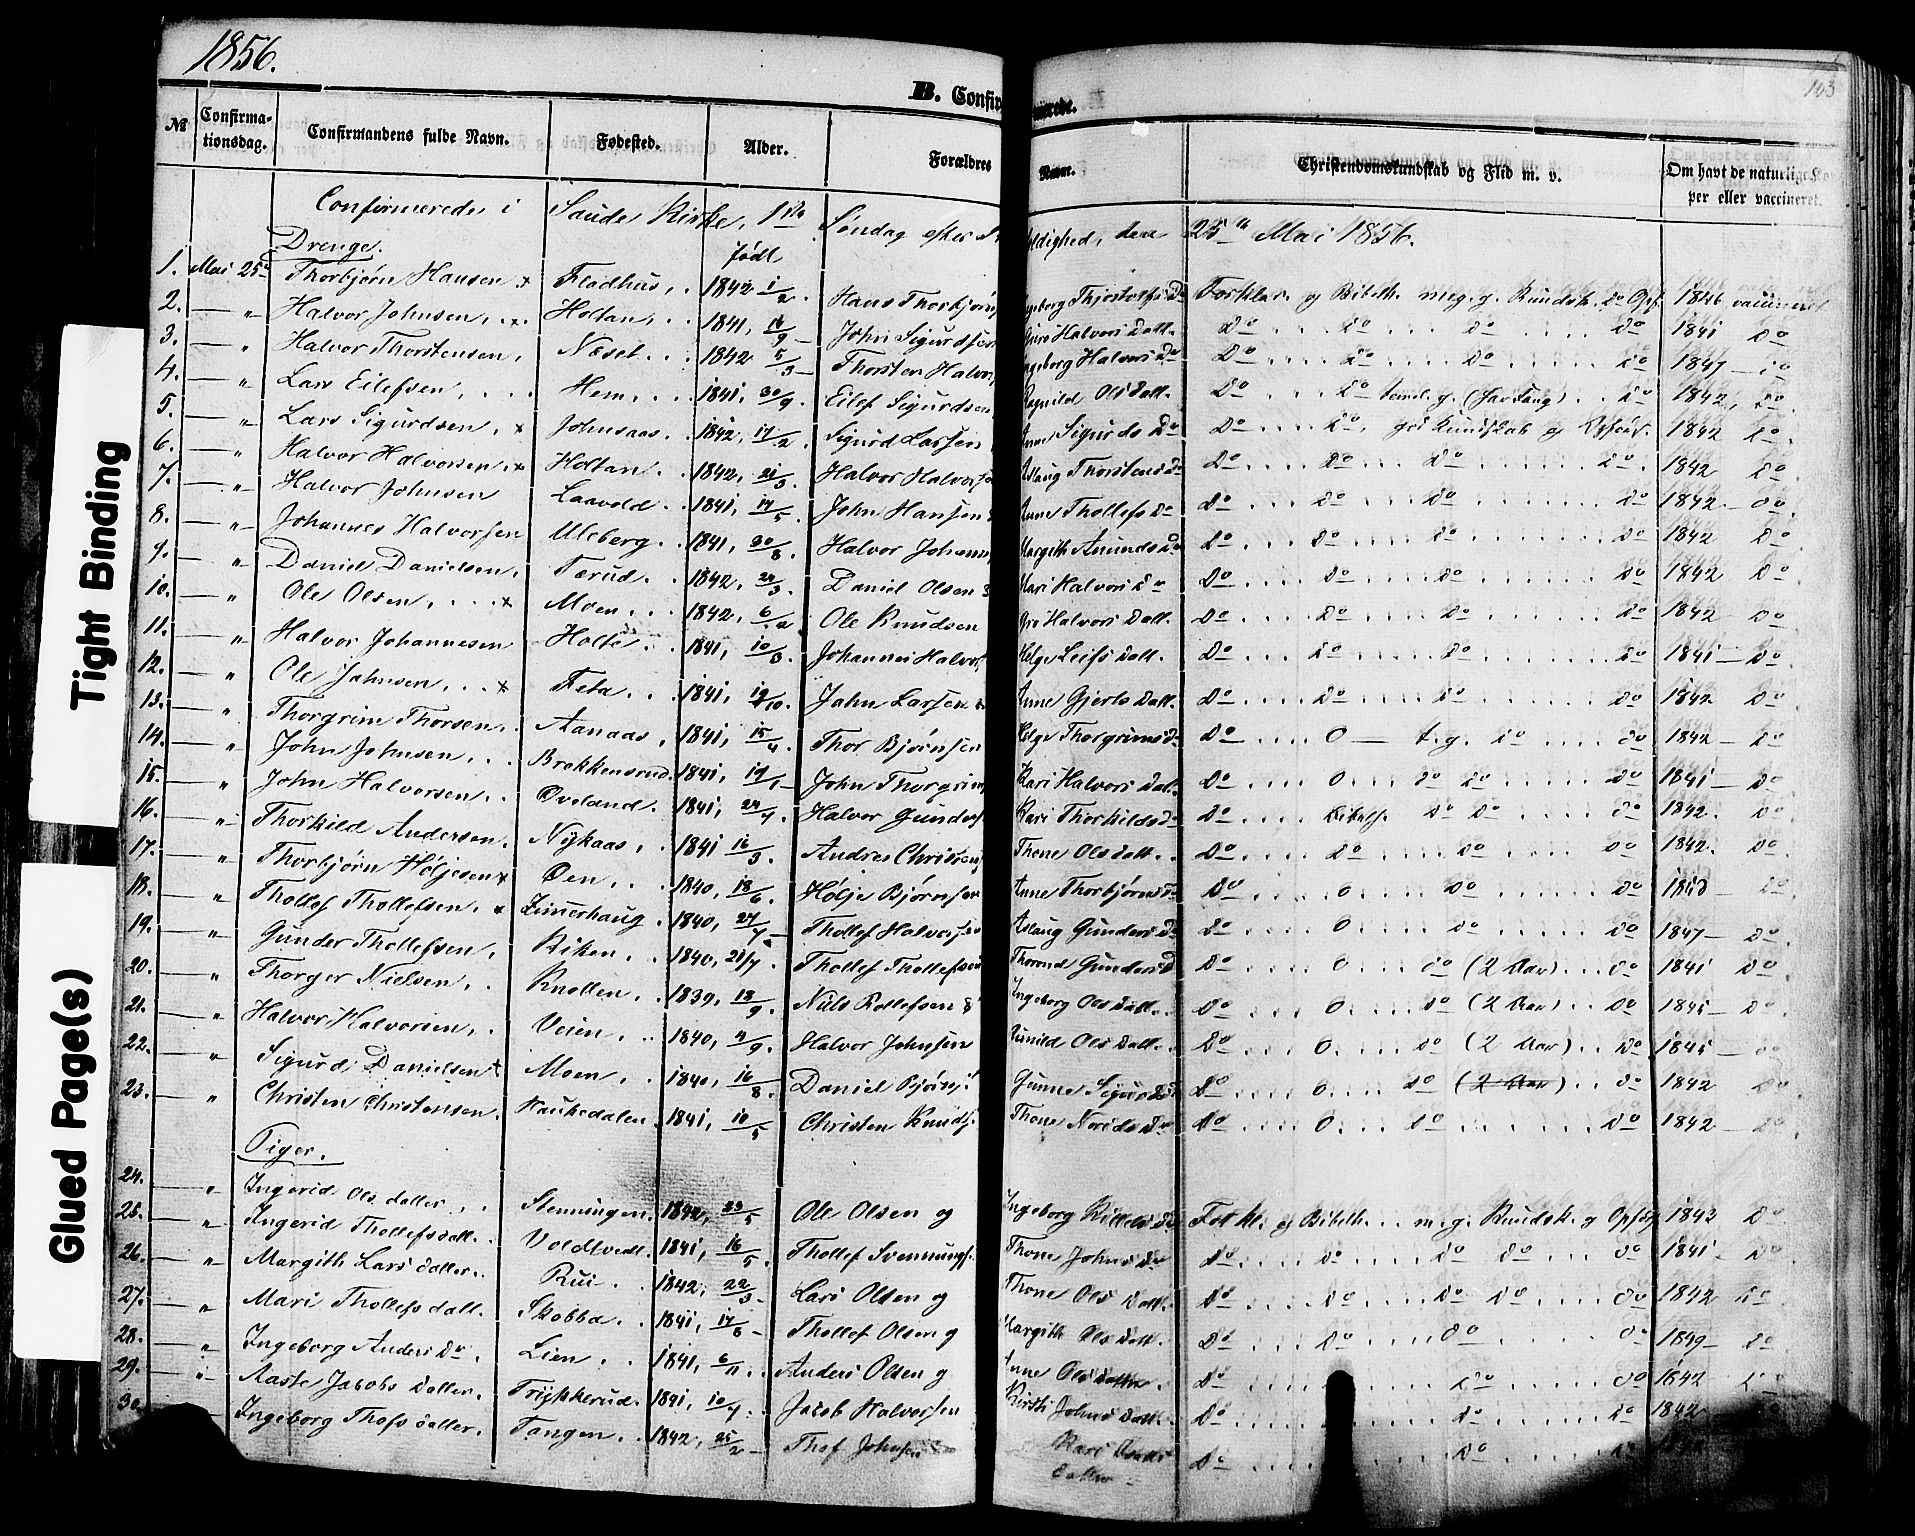 1856.
103
B. Confir
mirede.
№ Confirmationsdag. Confirmandens fulde Navn. Fødested. Alder. Forældres Navn. Christendomskundskab og Flid m. v. Om havt de naturlige Kopper eller vaccineret.
Confirmerede i Saude Kirke, 1ste Søndag efter ldighed, den 25de Mai 1856.
Drenge. født
1. Mai 25de Thorbjørn Hansen x Flodhus, 1842 1/2 Hans Thorbjørn Ingeborg Thjostolfs Dr Forklar. og Bibelh. meg. g. Kundsk. Do Opf. 1846 vaccineret
2. — " Halvor Johnsen, x Holtan, 1841, 14/9 — John Sigurdsen Guro Halvors Datt. Do Do Do Do 1841 Do
3. — " Halvor Thorstensen, Næset 1842 5/3 — Thorsten Halvors Ingeborg Halvors Dr Do Do Do Do 1847 — Do
4. — " Lars Eilefsen, Hem, 1841, 30/9 Eilef Sigurdsen Ragnild Ols Datt. Do Do temel. g. Do 1842, Do
5. — " Lars Sigurdsen, x Johnsaas 1842, 17/2 Sigurd Larsen Anne Sigurds Dr Do Do, god Kundskab og Opførs. 1842 Do
6. — " Halvor Halvorsen x Holtan 1842, 21/3 Halvor Halvors Aslaug Thorstens Dr Do Do Do Do 1842 Do
7. — " Halvor Johnsen Laavold 1841, 17/5 John Hansen Anne Thollefs Dr Do Do Do Do 1842 — Do
8. — " Johannes Halvorsen Uleberg 1841, 30/8 Halvor Johann Margith Amunds Dr Do Do Do Do 1842 Do
9. — " Daniel Danielsen, Torud 1842, 24/3 Daniel Olsen Mari Halvors Dr Do Do Do Do 1842 Do
10. — " Ole Olsen, x Moen 1842, 6/2 Ole Knudsen Gro Halvors Datt. Do Do Do Do 1842 Do
11. — " Halvor Johannesen Holte 1841, 10/3 Johannes Halvors Helge Leifs Datt. Do Do Do Do 1841 — Do
12. — " Ole Johnsen, x Feta 1841, 19/10 John Larsen Anne Gjerls Datt. Do Do Do Do 1842 Do
13. — " Thorgrim Thorsen, Aanaas, 1841, 15/4 Thor Bjørnsen Helge Thorgrims Dr Do 0 — t. g. Do Do 1842 — Do
14. — " John Johnsen, Brekkensrud 1841, 17/1 — John Thorgrim Kari Halvors Dat. Do 0 Do Do Do 1841 — Do
15. — " John Halvorsen Oveland 1841, 24/7 Halvor Gunders Kari Thorkilds Dr Do Bibelh. Do Do Do 1842. Do
16. — " Thorkild Andersen Nykaas, 1841 16/3 Andres Christens Thone Ols Datt. Do Do Do Do 1842. Do
17. — " Thorbjørn Høljesen x Øen, 1840, 18/6 Hølje Bjørnsen Anne Thorbjørns Dr Do 0 Do Do Do
18. — " Thollef Thollefsen, x Zimerhaug 1840, 27/7 — Thollef Halvorsen Aslaug Gunders Dr Do 0 Do Do 1847 — Do
19. — " Gunder Thollefsen, Viken, 1840, 21/7 Thollef Thollefsen Thorand Gunders D Do 0 Do (2 Aar) Do 1841 Do
20. — " Thorger Nielsen, Knollen, 1839, 13/9 Nils Rollefsen & Ingeborg Ols Datt. Do 0 Do (2 Aar) Do 1845 — Do
21. — " Halvor Halvorsen, Veien, 1840, 4/9 Halvor Johnsen Gunild Ols Datt. Do 0 Do (2 Aar) Do 1845 — Do
22. — " Sigurd Danielsen x Moen, 1840, 16/8 Daniel Bjørns Gunne Sigurds D Do 0 Do (2 Aar) Do 1842 Do
23. — " Christen Christensen Haukedalen 1841, 10/5 Christen Knuds Thone Nerids Dr Do 0 Do Do 1842 — Do
Piger.
24. — " Ingerid Ols datter Stenningen 1842, 23/5 Ole Olsen og Ingeborg Killels Dr Forkl. og Bibelh. m. g. Kundsk. og Opførs 1843 Do
25. — " Ingerid Thollefs datt. Voldtvedt 1841, 16/5 Thollef Svennungs. Thone Johns Dr Do Do Do Do Do 1841 — Do
26. — " Margith Lars datter. Rui 1842, 22/3 Lars Olsen og Thone Ols Datt. Do Do Do Do Do 1842 Do
27. — " Mari Thollefs datt. Skobba 1841, 17/6 — Thollef Olsen og Margith Ols Datt. Do Do Do Do 1849 — Do
28. — " Ingeborg Anders Dr. Lien 1841, 6/11 Anders Olsen og Anne Ols datter. Do Do Do 1842 Do
29. — " Aaste Jacobs datter. Trykkerud 1841, 10/7 Jacob Halvorsen Kirsti Johns Datt. Do Do Do 1842 Do
30 Ingeborg Thofs datter Tangen 1842, 25/2 — Thof Johnsen Kari datter Do Do Do
Tight Binding
Glued Page(s)